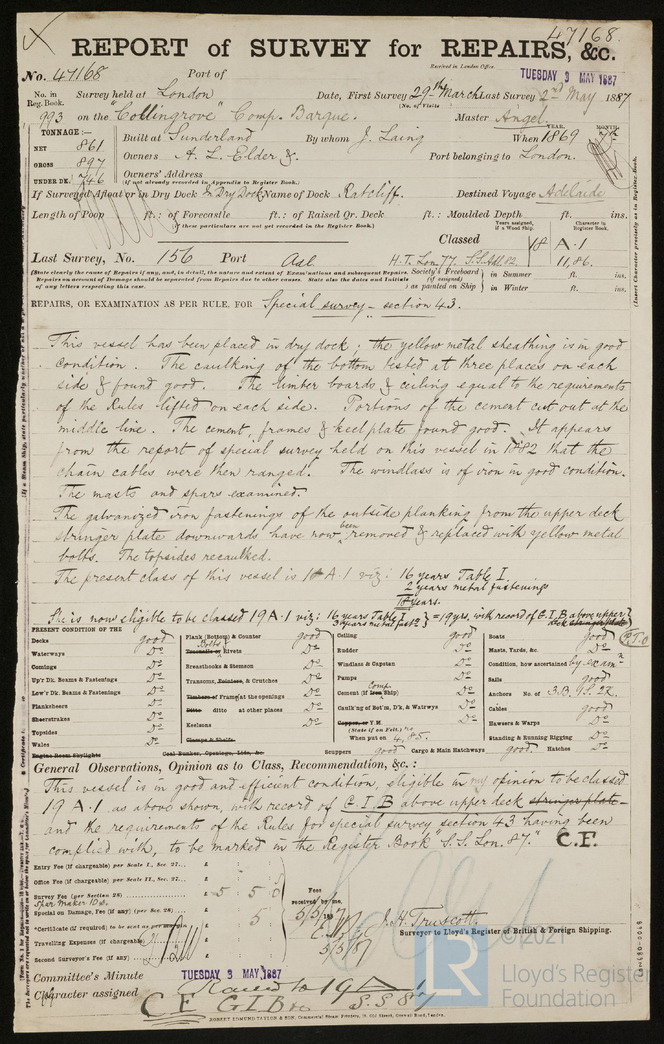 47168
REPORT of SURVEY for REPAIRS, &c.
Received in London Office
No. 47168 Port of TUESDAY 3 MAY 1887
No. in Reg. Book. Survey held at London Date, First Survey 29th March Last Survey 2nd May 1887
(No. of Visits
993 on the "Collingrove" Comp. Barque. Master Angel
TONNAGE:—
NET 861
GROSS 897
UNDER DK. 746
Built at Sunderland By whom J. Laing When 1869 YEAR. MONTH. 7th
Owners A. L. Elder &. Port belonging to London.
Owners' Address
(If not already recorded in Appendix to Register Book.)
If Surveyed Afloat or in Dry Dock In Dry Dock Name of Dock Ratcliff. Destined Voyage Adelaide
Length of Poop ft.: of Forecastle ft.: of Raised Qr. Deck ft.: Moulded Depth ft. ins.
(If these particulars are not yet recorded in the Register Book.)
Years assigned, if a Wood Ship. Character in Register Book.
Classed 18 A.1
Last Survey, No. 156 Port Adl. H.T. Lon. 77. S.S. Adl. 82. 11,86.
(State clearly the cause of Repairs if any, and, in detail, the nature and extent of Examinations and subsequent Repairs.
Repairs on account of Damage should be separated from Repairs due to other causes. State also the dates and Initials
of any letters respecting this case.
Society's Freeboard (if assigned) as painted on Ship
in Summer ft. ins.
in Winter ft. ins.
REPAIRS, OR EXAMINATION AS PER RULE, FOR Special survey - section 43.
This vessel has been placed in dry dock; the yellow metal sheathing is in good
condition. The caulking of the bottom tested at three places on each
side & found good. The limber boards & ceiling equal to the requirements
of the Rules lifted on each side. Portions of the cement cut out at the
middle line. The cement, frames & keelplate found good. It appears
from the report of special survey held on this vessel in 1882 that the
chain cables were then ranged. The windlass is of iron in good condition.
The masts and spars examined.
The galvanized iron fastenings of the outside planking from the upper deck
stringer plate downwards have now been removed & replaced with yellow metal
bolts. The topsides recaulked.
The present class of this vessel is 18 A.1 viz: 16 years Table I.
2 years metal fastenings
18 years.
She is now eligible to be classed 19 A.1 viz: 16 years Table I
3 years metal fastgs = 19 yrs. with record of C.I.B above upper
deck stringer plate
PRESENT CONDITION OF THE
Decks good
Waterways Do
Comings Do
Up'r Dk. Beams & Fastenings Do
Low'r Dk. Beams & Fastenings Do
Planksheers Do
Sheerstrakes Do
Topsides Do
Wales Do
Engine Room Skylights
Plank (Bottom) & Counter good
Treenails or Rivets Bolts Do
Breasthooks & Stemson Do
Transoms, Pointers, & Crutches Do
Timbers or Frames at the openings Do
Ditto ditto at other places Do
Keelsons Do
Clamps & Shelfs
Coal Bunker, Openings, Lids, &c.
Ceiling good
Rudder Do
Windlass & Capstan Do
Pumps Do
Cement (if Iron Ship) Comp. Do
Caulk'ng of Bot'm, D'k, & Watrwys Do
Copper, or Y.M. Do
(State if on Felt.)
When put on 4.85.
Scuppers good Cargo & Main Hatchways good Hatches Do
Boats good
Masts, Yards, &c. Do
Condition, how ascertained by exam n
Sails good
Anchors No. of 3.B. 1S. 2K.
Cables good
Hawsers & Warps Do
Standing & Running Rigging Do
General Observations, Opinion as to Class, Recommendation, &c.:
This vessel is in good and efficient condition, eligible in my opinion to be classed
19 A.1 as above shown, with record of C.I.B above upper deck stringer plate
and the requirements of the Rules for special survey section 43 having been
complied with, to be marked in the Register Book "S.S. Lon. 87." C.F.
Entry Fee (if chargeable) per Scale I., Sec. 27... £
Office Fee (if chargeable) per Scale II., Sec. 27. £
Survey Fee (per Section 28) £ 5 5 0
Spar Maker 10s.
Special on Damage, Fee (if any) (per Sec. 28) £ 5
*Certificate (if required) to be sent as per margin
Travelling Expenses (if chargeable) £
Second Surveyor's Fee (if any) £
Fees received by me,
5/5/1887
J. H. Truscott
Surveyor to Lloyd's Register of British & Foreign Shipping.
Committee's Minute TUESDAY 3 MAY 1887
Character assigned Raised to 19 A 1
C.F. C.I.B S.S 87
ROBERT EDMUND TAYLOR & SON, Commercial Steam Printers, 19, Old Street, Goswell Road, London.
©2021
LR
Lloyd's Register
Foundation